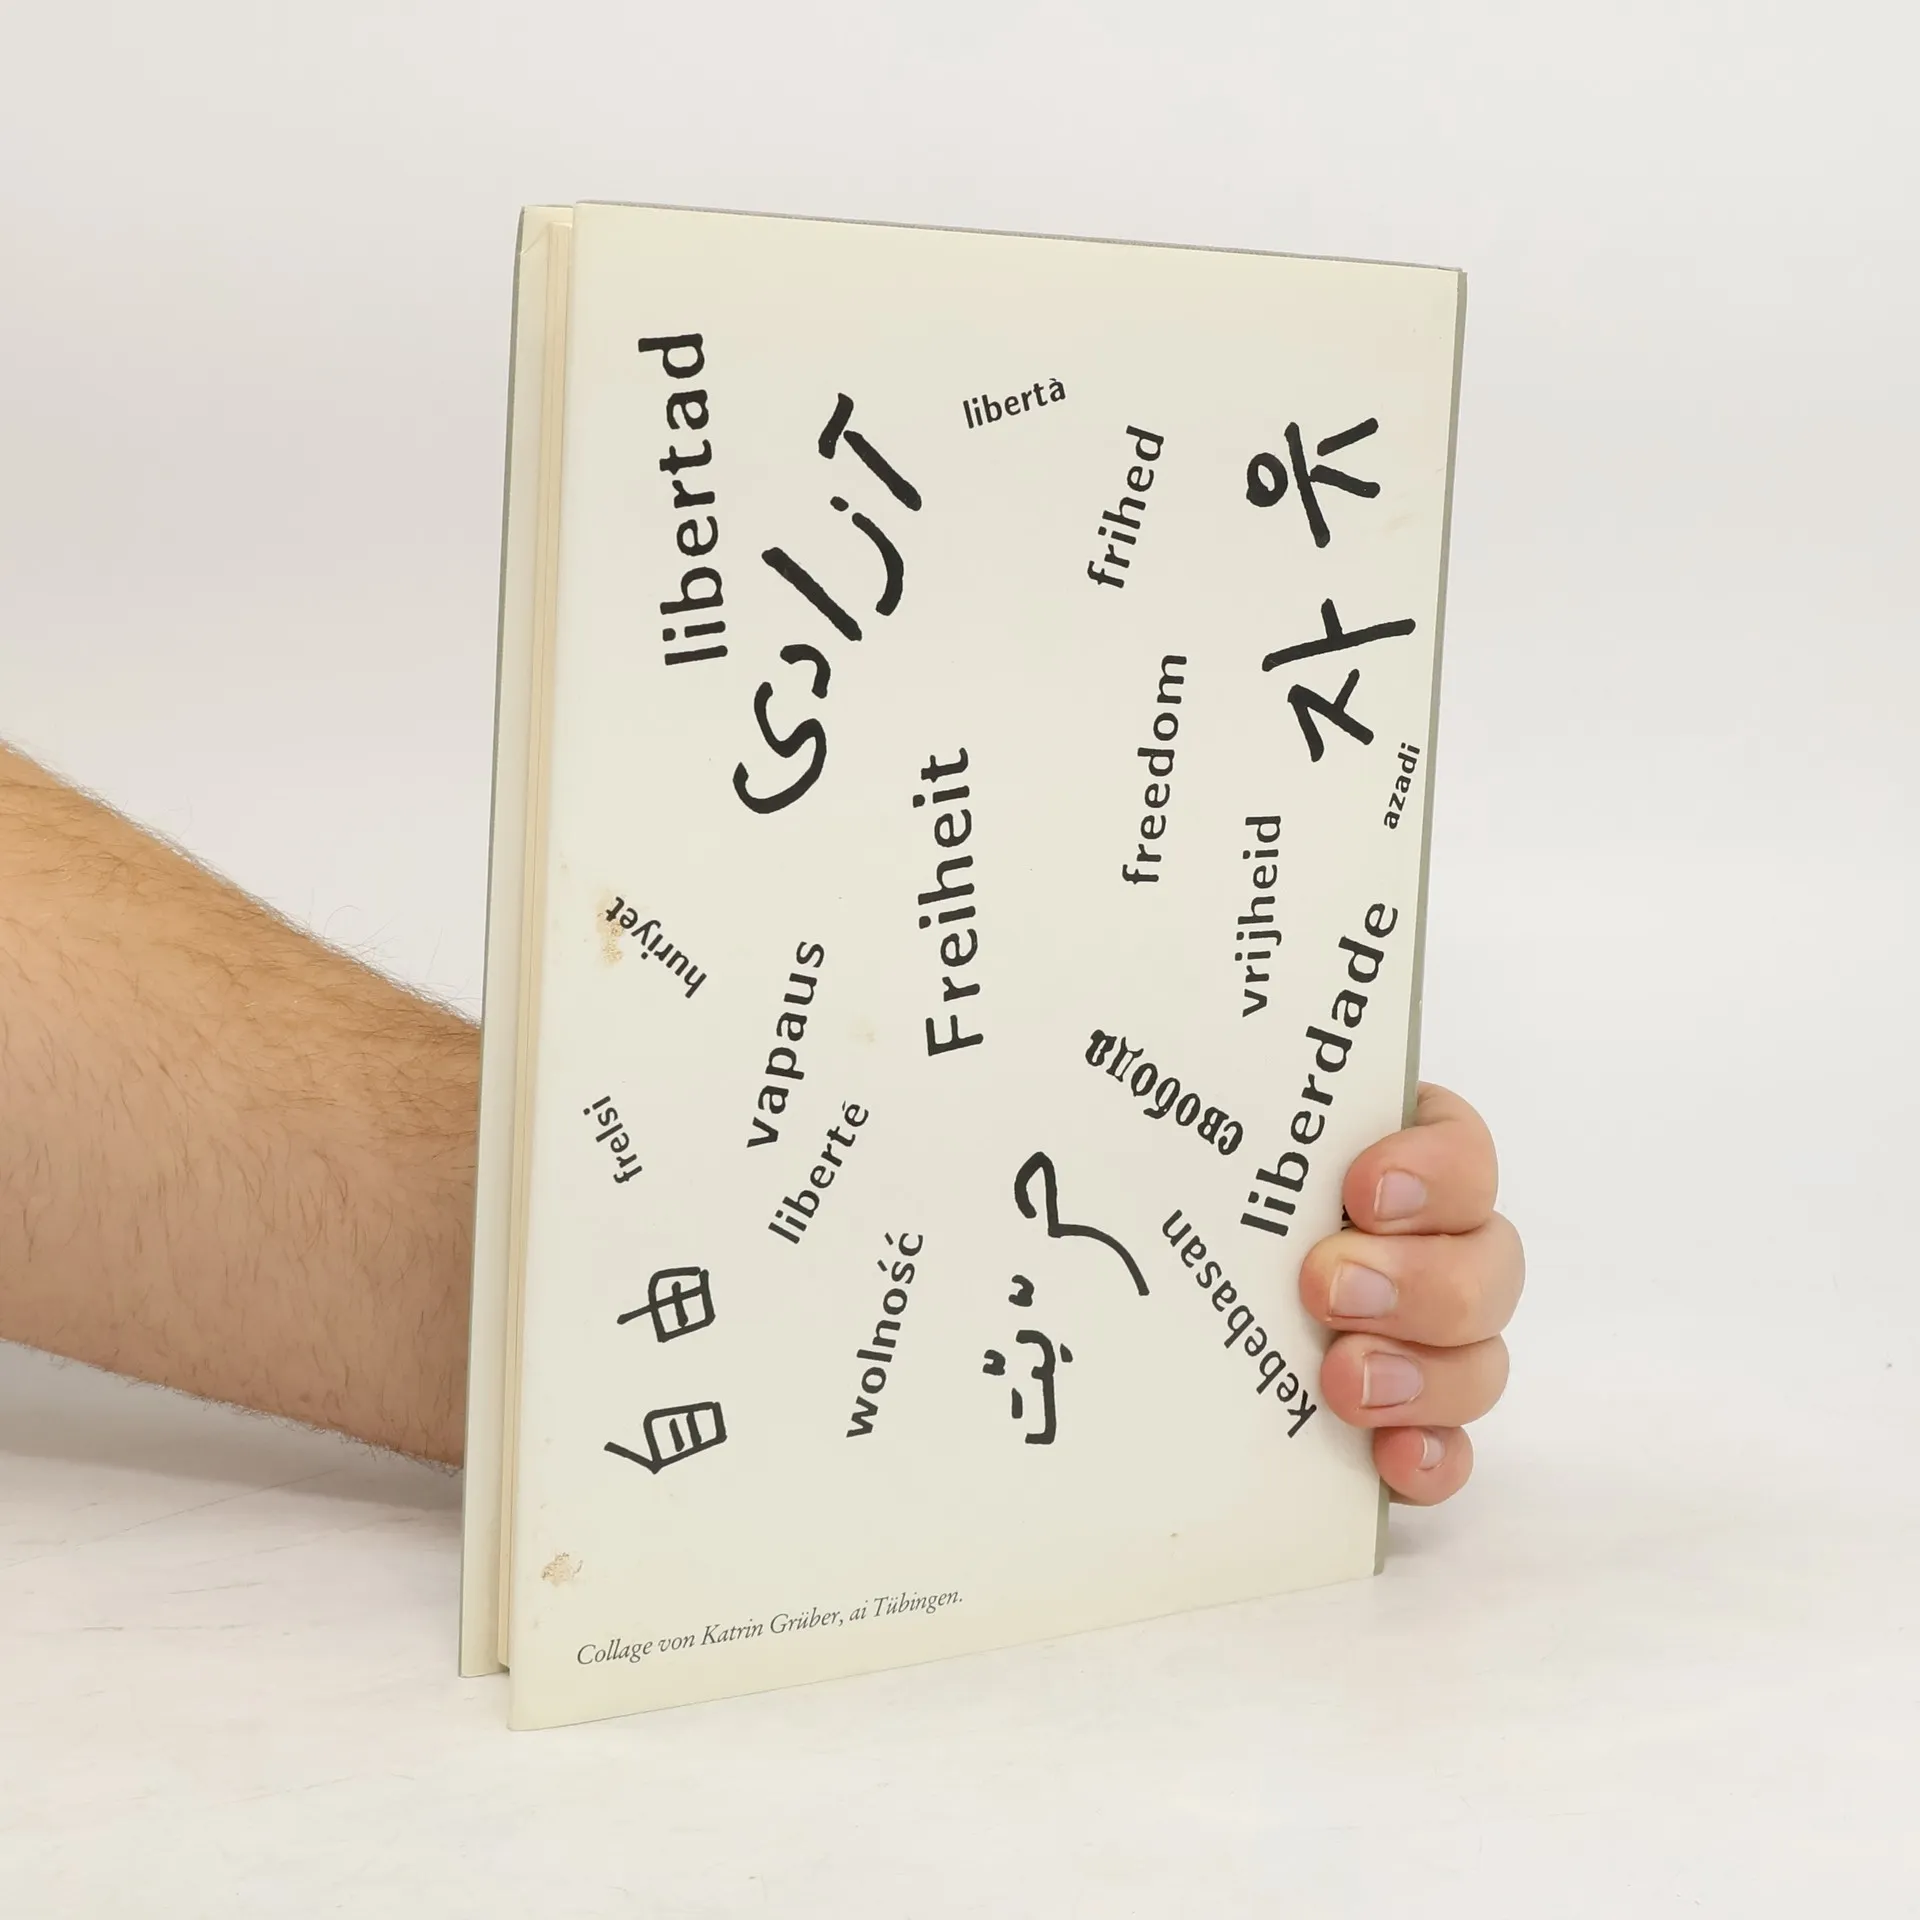 libertad
آزادی
libertà
frihed
자유
freedom
azadi
Freiheit
vrijheid
huriyet
vapaus
liberdade
свобода
frelsi
liberté
wolność
kebebasan
自由
Collage von Katrin Grüber, ai Tübingen.